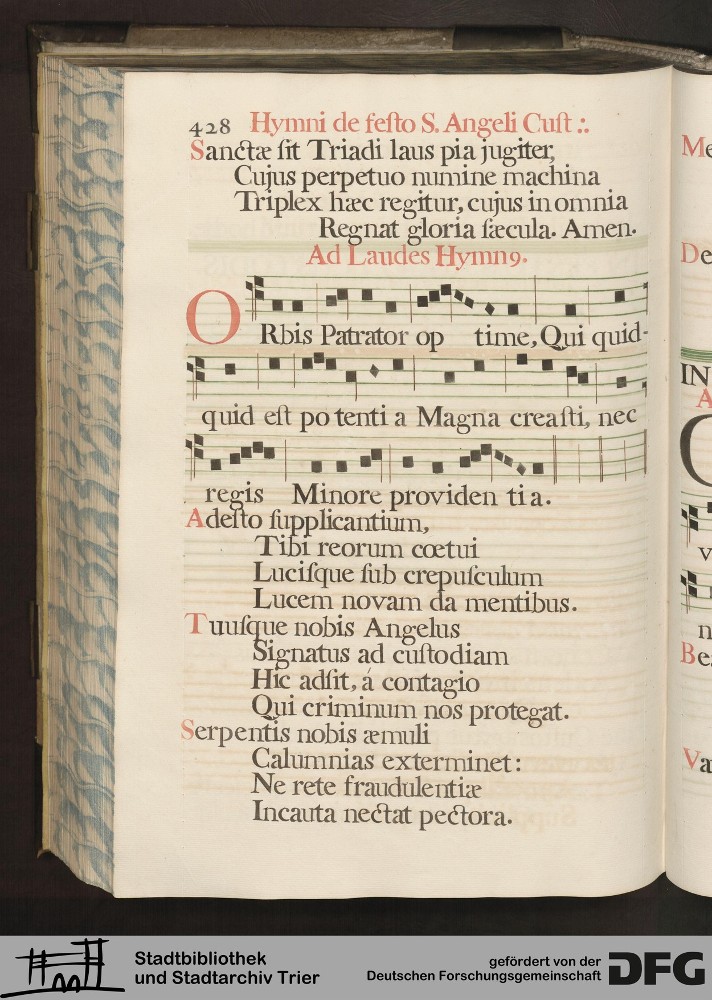 428 Hymni de festo S. Angeli Cust :.
Sanctæ sit Triadi laus pia jugiter,
Cujus perpetuo numine machina
Triplex hæc regitur, cujus in omnia
Regnat gloria sæcula. Amen.
Ad Laudes Hymn9.
ORbis Patrator op time, Qui quid-
quid est po tenti a Magna creasti, nec
regis Minore providen ti a.
Adesto supplicantium,
Tibi reorum cœtui
Lucisque sub crepusculum
Lucem novam da mentibus.
Tuusque nobis Angelus
Signatus ad custodiam
Hic adsit, á contagio
Qui criminum nos protegat.
Serpentis nobis æmuli
Calumnias exterminet:
Ne rete fraudulentiæ
Incauta nectat pectora.
Me
De
IN
A
v
n
Be
Va
Stadtbibliothek
und Stadtarchiv Trier
gefördert von der
Deutschen Forschungsgemeinschaft
DFG